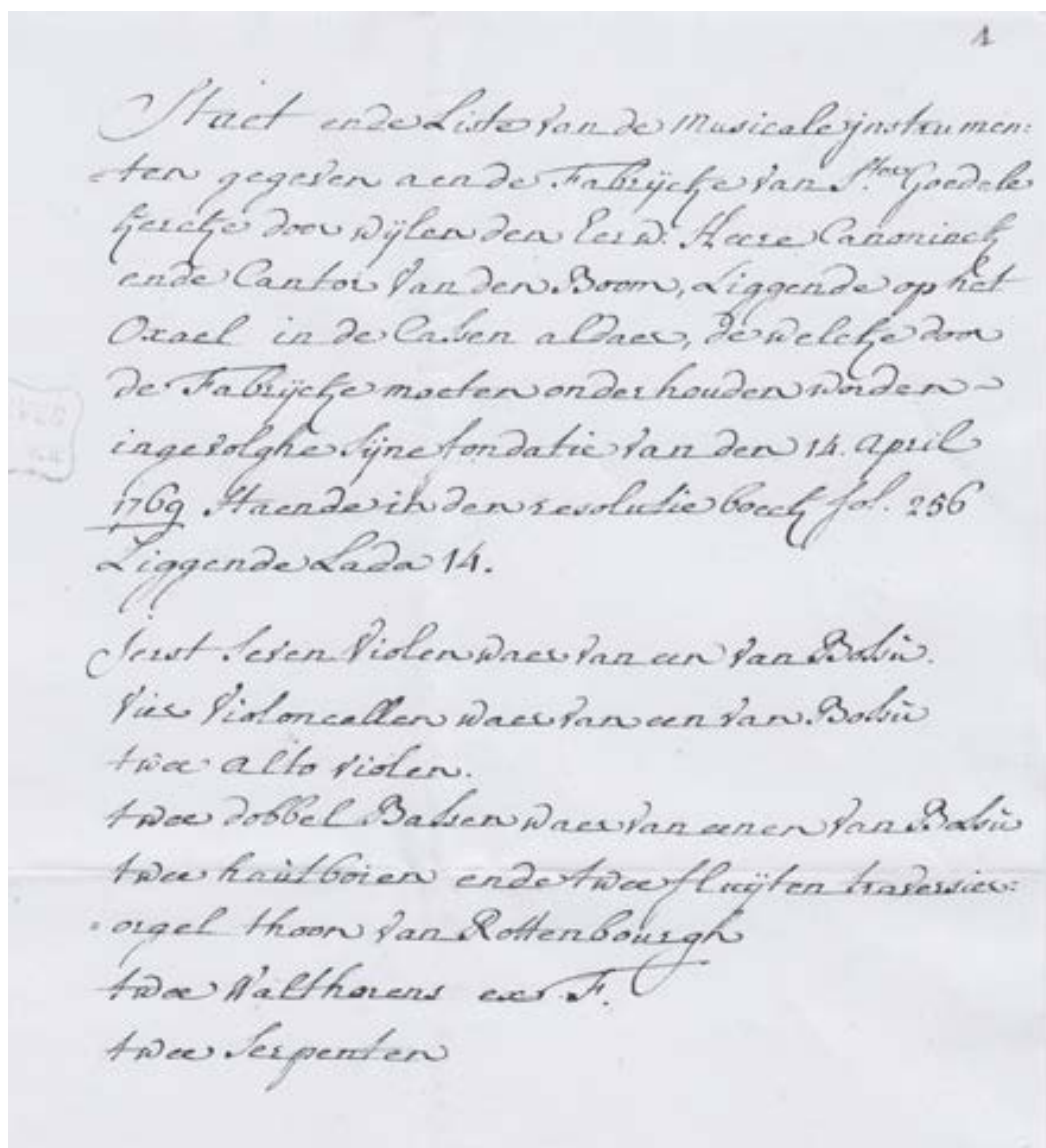 1
Staet ende Liste van de Musicale jnstrumen:
=ten gegeven aen de Fabrijcke van Ste. Goedele
kercke door wijlen den Eerw. Heere Canoninck
ende Cantor Van den Boom, Liggende op het
Oxael in de Cassen aldaer, de welcke door
de Fabrijcke moeten onderhouden worden~
ingevolghe sijne fondatie van den 14. april
1769 staende in den resolutie boeck fol. 256
Liggende Lada 14.
Ierst seven Violen waer van een van Bossù.
Vier Violoncellen waer van een van Bossù
twee alto violen.
twee dobbel Bassen waer van eenen van Bossù
twee haùtboien ende twee fluijten traversier:
=orgel thoon van Rottenbourgh
twee Walthorens ex F.
twee Serpenten